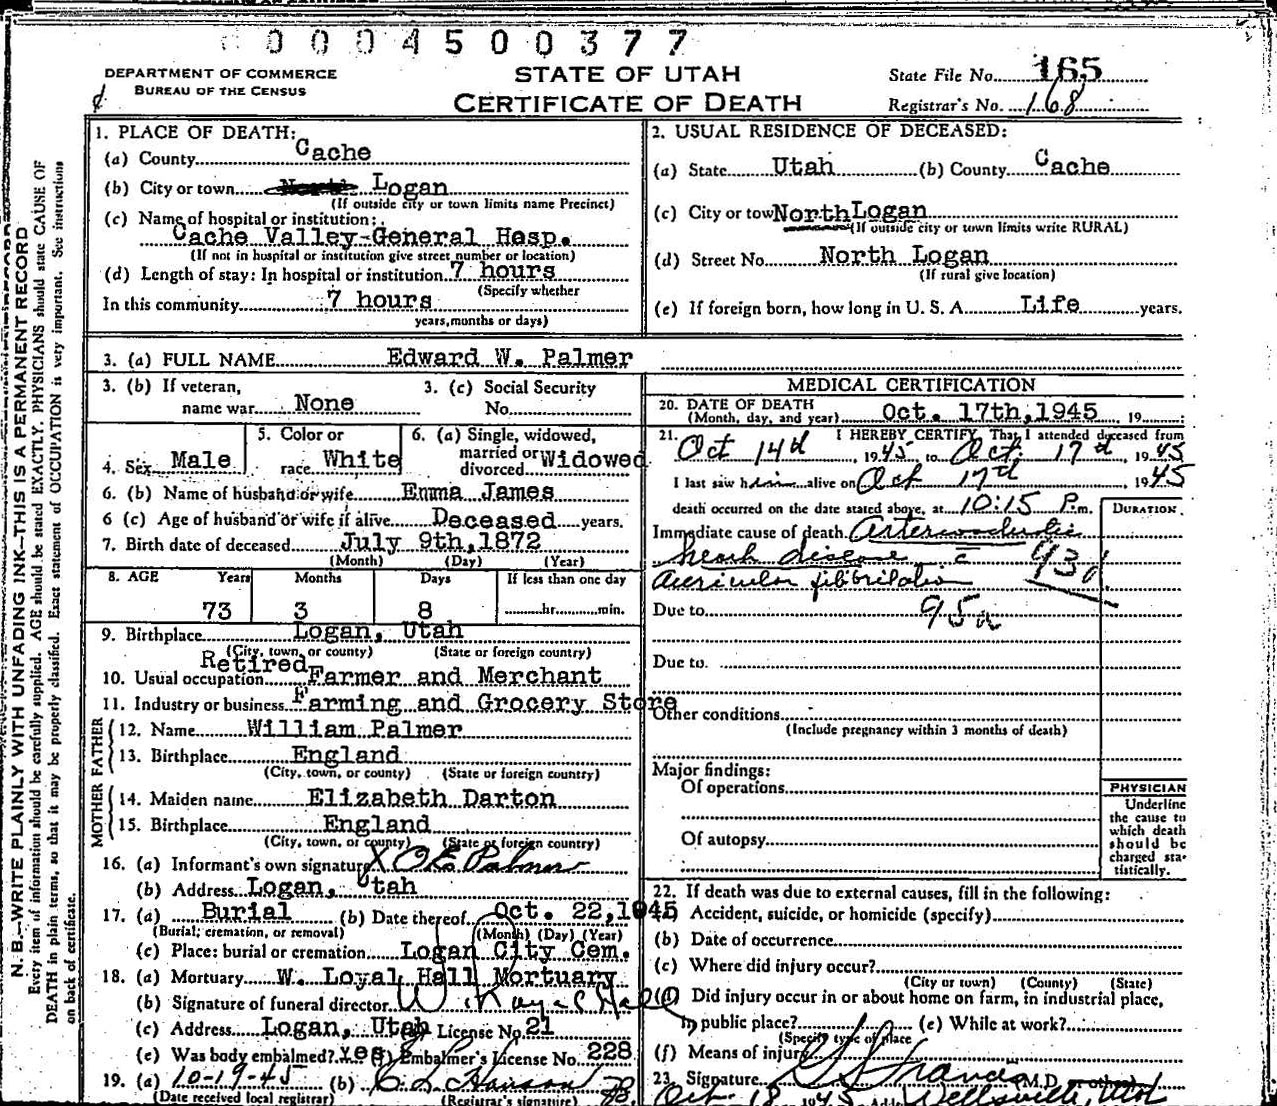 0004500377
DEPARTMENT OF COMMERCE
BUREAU OF THE CENSUS
STATE OF UTAH
CERTIFICATE OF DEATH
State File No. 165
Registrar's No. 168
N. B.—WRITE PLAINLY WITH UNFADING INK—THIS IS A PERMANENT RECORD
Every item of information should be carefully supplied. AGE should be stated EXACTLY. PHYSICIANS should state CAUSE OF
DEATH in plain terms, so that it may be properly classified. Exact statement of OCCUPATION is very important. See instructions
on back of certificate.
1. PLACE OF DEATH:
(a) County Cache
(b) City or town Logan
(If outside city or town limits name Precinct)
(c) Name of hospital or institution:
Cache Valley-General Hosp.
(If not in hospital or institution give street number or location)
(d) Length of stay: In hospital or institution 7 hours
(Specify whether
In this community 7 hours
years, months or days)
2. USUAL RESIDENCE OF DECEASED:
(a) State Utah (b) County Cache
(c) City or town North Logan
(If outside city or town limits write RURAL)
(d) Street No. North Logan
(If rural give location)
(e) If foreign born, how long in U. S. A. Life years.
3. (a) FULL NAME Edward W. Palmer
3. (b) If veteran,
name war None
3. (c) Social Security
No.
4. Sex Male
5. Color or
race White
6. (a) Single, widowed,
married or
divorced Widowed
6. (b) Name of husband or wife Emma James
6 (c) Age of husband or wife if alive Deceased years.
7. Birth date of deceased July 9th, 1872
(Month) (Day) (Year)
8. AGE Years Months Days If less than one day
73 3 8 hr. min.
9. Birthplace Logan, Utah
(City, town, or county) (State or foreign country)
Retired
10. Usual occupation Farmer and Merchant
11. Industry or business Farming and Grocery Store
FATHER
12. Name William Palmer
13. Birthplace England
(City, town, or county) (State or foreign country)
MOTHER
14. Maiden name Elizabeth Darton
15. Birthplace England
(City, town, or county) (State or foreign country)
16. (a) Informant's own signature X O E Palmer
(b) Address Logan, Utah
17. (a) Burial (b) Date thereof Oct. 22, 1945
(Burial, cremation, or removal) (Month) (Day) (Year)
(c) Place: burial or cremation Logan City Cem.
18. (a) Mortuary W. Loyal Hall Mortuary
(b) Signature of funeral director W Loyal Hall
(c) Address Logan, Utah License No. 21
(e) Was body embalmed? Yes Embalmer's License No. 228
19. (a) 10-19-45 (b)
(Date received local registrar) (Registrar's signature)
MEDICAL CERTIFICATION
20. DATE OF DEATH
(Month, day, and year) Oct. 17th, 1945 19
21. I HEREBY CERTIFY, That I attended deceased from
Oct 14th, 1945 to Oct. 17th, 1945
I last saw him alive on Oct 17th, 1945
death occurred on the date stated above, at 10:15 P.m.
DURATION
Immediate cause of death Arteriosclerotic
heart disease c̄ 93d
auricular fibrillation
Due to 95a
Due to.
Other conditions
(Include pregnancy within 3 months of death)
Major findings:
Of operations
Of autopsy
PHYSICIAN
Underline
the cause to
which death
should be
charged sta-
tistically.
22. If death was due to external causes, fill in the following:
(a) Accident, suicide, or homicide (specify)
(b) Date of occurrence
(c) Where did injury occur?
(City or town) (County) (State)
(d) Did injury occur in or about home on farm, in industrial place,
in public place? (e) While at work?
(Specify type of place
(f) Means of injury
23. Signature M.D. or other
Oct 18 1945 Wellsville, Utah